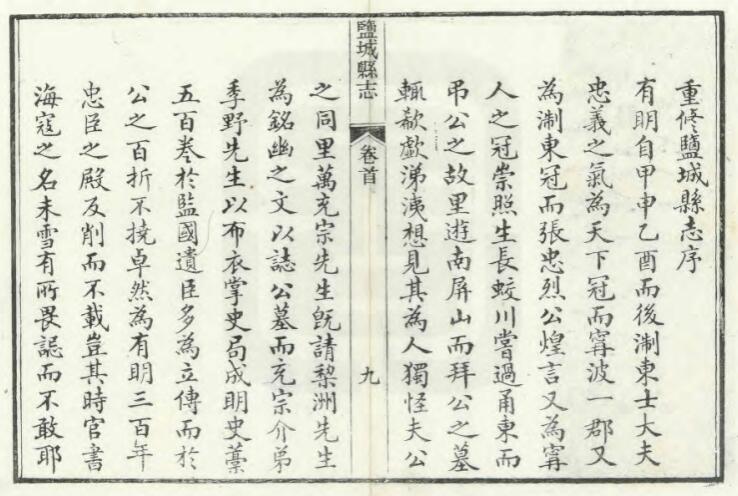 重修鹽城縣志序
有明自甲申乙酉而後淛東士大夫
忠義之氣為天下冠而甯波一郡又
為淛東冠而張忠烈公煌言又為甯
人之冠崇照生長蛟川嘗過甬東而
弔公之故里遊南屏山而拜公之墓
輒欷歔涕洟想見其為人獨怪夫公
鹽城縣志
卷首
九
之同里萬充宗先生旣請梨洲先生
為銘幽之文以誌公墓而充宗介弟
季野先生以布衣掌史局成明史藁
五百卷於監國遺臣多為立傳而於
公之百折不撓卓然為有明三百年
忠臣之殿反削而不載豈其時官書
海寇之名未雪有所畏誋而不敢耶